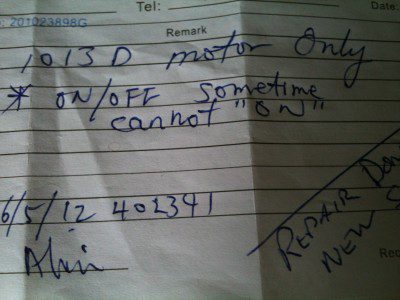 Tel:
Date:
: 201023898G
Remark
1013D motor Only
* ON/OFF sometime
cannot "ON"
6/5/12 402341
Alvin
REPAIR
NEW
Rec